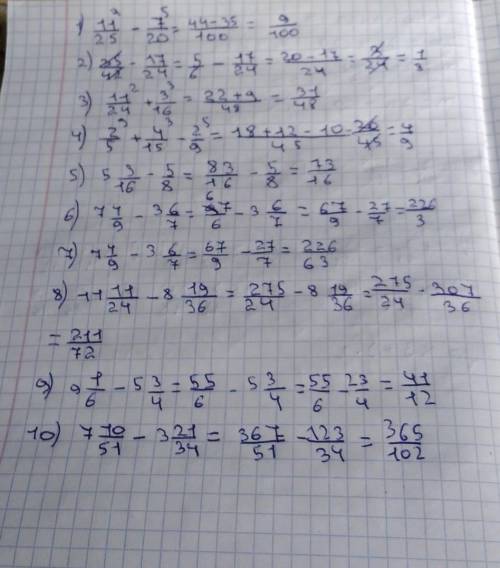 1) 11/25 - 7/20 = 44-35/100 = 9/100
2) 25/42 - 17/24 = 5/6 - 17/24 = 20-17/24 = 3/24 = 1/8
3) 11²/24 + 3³/16 = 22+9/48 = 31/48
4) 2/5 + 4³/15 - 2⁵/9 = 18+12-10/45 = 20/45 = 4/9
5) 5 3/16 - 5/8 = 83/16 - 5/8 = 73/16
6) 7 4/9 - 3 6/7 = 67/6 - 3 6/7 = 67/9 - 27/7 = 226/3
7) 7 4/9 - 3 6/7 = 67/9 - 27/7 = 226/63
8) 11 11/24 - 8 19/36 = 275/24 - 8 19/36 = 275/24 - 307/36
= 211/72
9) 9 1/6 - 5 3/4 = 55/6 - 5 3/4 = 55/6 - 23/4 = 41/12
10) 7 10/51 - 3 21/34 = 367/51 - 123/34 = 365/102